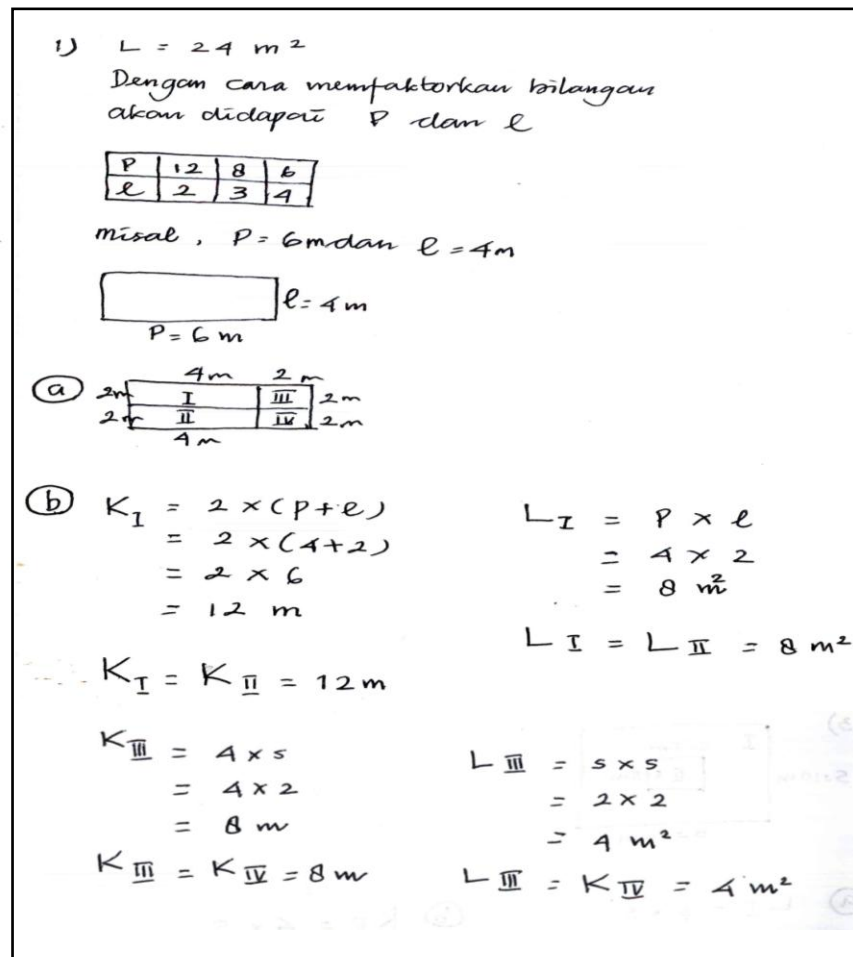 1) L = 24 m²
Dengan cara memfaktorkan bilangan
akan didapat P dan l
P 12 8 6
l 2 3 4
misal, P = 6m dan l = 4m
l = 4 m
P = 6 m
4m 2m
a 2m I III 2m
2m II IV 2m
4m
b K_I = 2 × (p + l)
= 2 × (4+2)
= 2 × 6
= 12 m
K_I = K_II = 12 m
L_I = P × l
= 4 × 2
= 8 m²
L_I = L_II = 8 m²
K_III = 4 × s
= 4 × 2
= 8 m
K_III = K_IV = 8 m
L_III = s × s
= 2 × 2
= 4 m²
L_III = K_IV = 4 m²